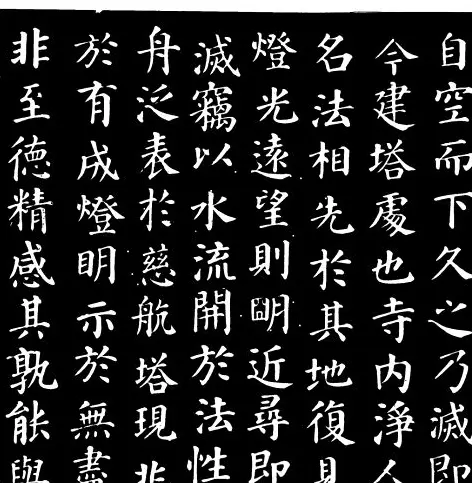 自空而下久之乃滅即
今建塔處也寺內淨人
名法相先於其地復見
燈光遠望則明近尋即
滅竊以水流開於法性
舟泛表於慈航塔現非
於有成燈明示於無盡
非至德精感其孰能與